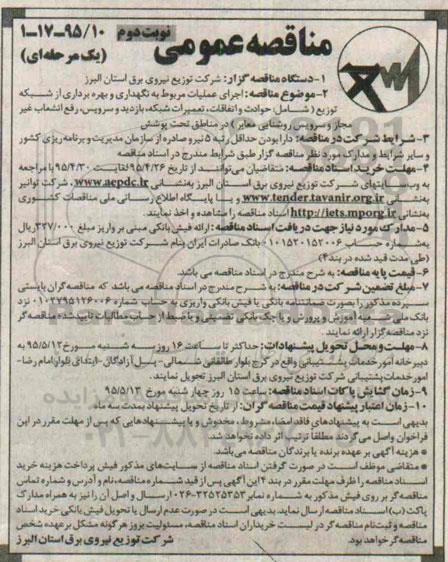 مناقصه عمومی
نوبت دوم
۹۵/۱۰-۱۷-۱
(یک مرحله‌ای)
۱-دستگاه مناقصه گزار: شرکت توزیع نیروی برق استان البرز
۲-موضوع مناقصه: اجرای عملیات مربوط به نگهداری و بهره برداری از شبکه
توزیع (شامل: حوادث و اتفاقات، تعمیرات شبکه، بازدید و سرویس، رفع انشعاب غیر
مجاز و سرویس روشنایی معابر) در مناطق تحت پوشش
۳-شرایط شرکت در مناقصه: دارا بودن حداقل رتبه ۵ نیرو صادره از سازمان مدیریت و برنامه ریزی کشور
و سایر شرایط و مدارک مورد نظر مناقصه گزار طبق شرایط مندرج در اسناد مناقصه
۴-مهلت خرید اسناد مناقصه: متقاضیان می‌توانند از تاریخ ۹۵/۴/۲۶ لغایت ۹۵/۴/۳۰ با مراجعه
به وب سایتهای شرکت توزیع نیروی برق استان البرز به‌نشانی www.aepdc.ir، شرکت توانیر
به‌نشانی www.tender.tavanir.org.ir و یا پایگاه اطلاع رسانی ملی مناقصات کشوری
به‌نشانی http://iets.mporg.ir اسناد مناقصه را مشاهده و اخذ نمایند.
۵-مدارک مورد نیاز جهت دریافت اسناد مناقصه: ارائه فیش بانکی مبنی بر واریز مبلغ ۳۲۷/۰۰۰ ریال
به‌شماره حساب ۰۱۰۱۵۲۰۱۵۲۰۰۶ بانک صادرات ایران بنام شرکت توزیع نیروی برق البرز
(طی مدت قید شده در بند ۴)
۶-قیمت پایه مناقصه: به شرح مندرج در اسناد مناقصه می باشد.
۷-مبلغ تضمین شرکت در مناقصه: به شرح مندرج در اسناد مناقصه می باشد که مناقصه گران بایستی
سپرده مذکور را بصورت ضمانتنامه بانکی یا فیش بانکی واریزی به حساب شماره ۰۱۰۲۷۹۵۱۲۶۰۰۶ نزد
بانک ملی شعبه آموزش و پرورش و یا چک بانکی تضمینی و یا ضبط از حساب مطالبات تایید شده مناقصه گر
نزد مناقصه گزار ارائه نمایند.
۸-مهلت و محل تحویل پیشنهادات: حداکثر تا ساعت ۱۶ روز سه شنبه مورخ ۹۵/۵/۱۲ به
دبیرخانه امور خدمات پشتیبانی واقع در کرج بلوار طالقانی شمالی- پل آزادگان- ابتدای بلوار امام رضا-
امور خدمات پشتیبانی شرکت توزیع نیروی برق استان البرز تحویل نمایند.
۹-زمان گشایش پاکات اسناد مناقصه: ساعت ۱۵ روز چهار شنبه مورخ ۹۵/۵/۱۳
۱۰-زمان اعتبار پیشنهاد قیمت مناقصه گران: از تاریخ تحویل پیشنهاد بمدت سه ماه
بدیهی است به پیشنهادهای فاقد امضاء، مشروط، مخدوش و یا پیشنهادهایی که پس از مهلت مقرر در این
فراخوان واصل می گردند مطلقا ترتیب اثر داده نخواهد شد.
* هزینه آگهی بر عهده برنده یا برندگان مناقصه می‌باشد.
* متقاضی موظف است در صورت گرفتن اسناد مناقصه از سایت‌های مذکور فیش پرداخت هزینه خرید
اسناد مناقصه را ظرف مهلت مقرر در بند ۴ این آگهی پس از قید شماره مناقصه، نام و آدرس و شماره تماس
مناقصه‌گر بر روی فیش مذکور به شماره نمابر ۳۲۵۲۵۳۵۳-۰۲۶ ارسال و اصل آن را نیز به همراه مدارک
پاکت (ب) اسناد مناقصه ارسال نماید. بدیهی است در صورت عدم ارسال یا تحویل فیش بانکی خرید اسناد
مناقصه و ثبت‌نام مناقصه گر در لیست خریداران اسناد مناقصه، مسئولیت بروز هر گونه مشکل بر عهده شخص
مناقصه گر خواهد بود.
شرکت توزیع نیروی برق استان البرز